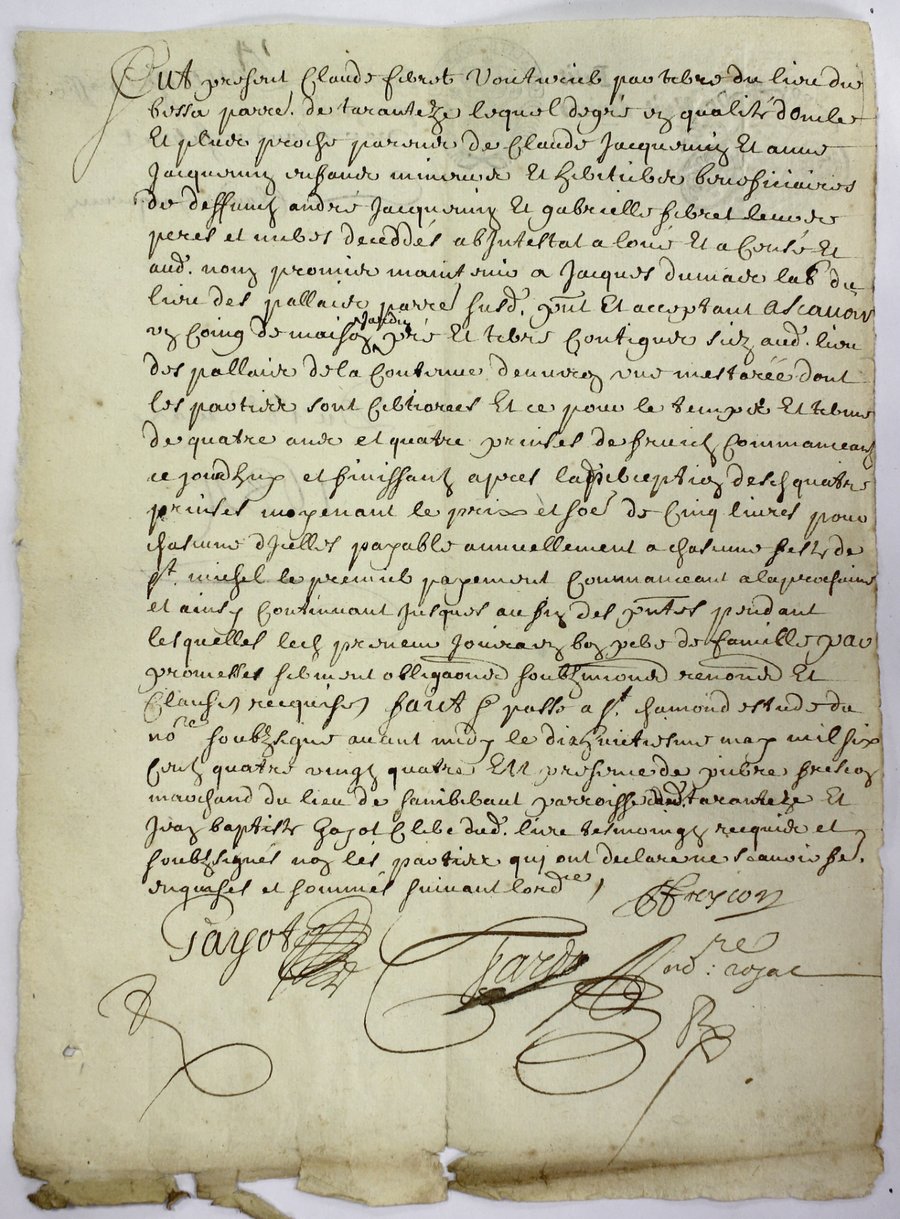 Fut present Claude Fibret voiturieur par terre du lieu du
bessa parre. de taranteze lequel de gré en qualité doncle
Et plus proche parent de Claude Jacquemin Et anne
Jacquemin enfans mineurs Et heritiers beneficiaires
de deffunct andré Jacquemin Et gabrielle fibret leurs
peres et meres deceddés abIntestat a loué Et a Censé Et
aud. nom promis maintenir a Jacques dumas lab du
lieu des pallais parre susd. pnt Et acceptant Ascavoir
un Coing de maison Jardin pré Et terre Contigues siz aud. lieu
des pallais de la Contenue denviron une mestérée dont
les parties sont Et ce pour le temps Et terme
de quatre ans et quatre prinses de fruicts Commanceant
ce jourdhuy et finissant apres la perception desd quatre
prinses moyenant le prix et soe de Cinq livres pour
chascune dIcelles payable annuellement a chascune feste de
st. michel le premier payement Commanceant a la prochaine
et ainsy Continuant Jusques au fin des pntes pendant
lesquelles led preneur Jouira en bon pere de famille par
promesses serment obligaons soubzmions renons Et
Clauses requises fait & passé a st. chamond estude du
nore soubzsigné avant midy le dixhuictiesme may mil six
Cent quatre vingt quatre En presence de pierre frescon
marchand du lieu de parroisse dud. taranteze Et
Jean baptiste Gayot Clerc dud. lieu tesmoings requis et
soubzsignés non les parties qui ont declaré ne scavoir fe.
enquises et sommés suivant lordce,
PFrescon
Gayot
Fardz
re
no : royal